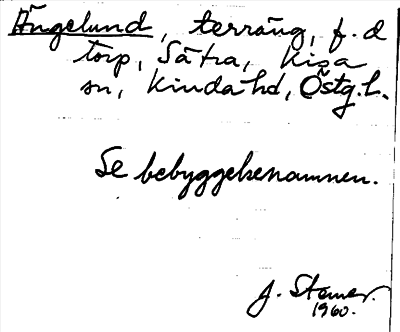 Ängelund, terräng, f.d
torp, Sätra, Kisa
sn, Kinda hd, Östg.l.
Se bebyggelsenamnen.
J. Stemer.
1960.